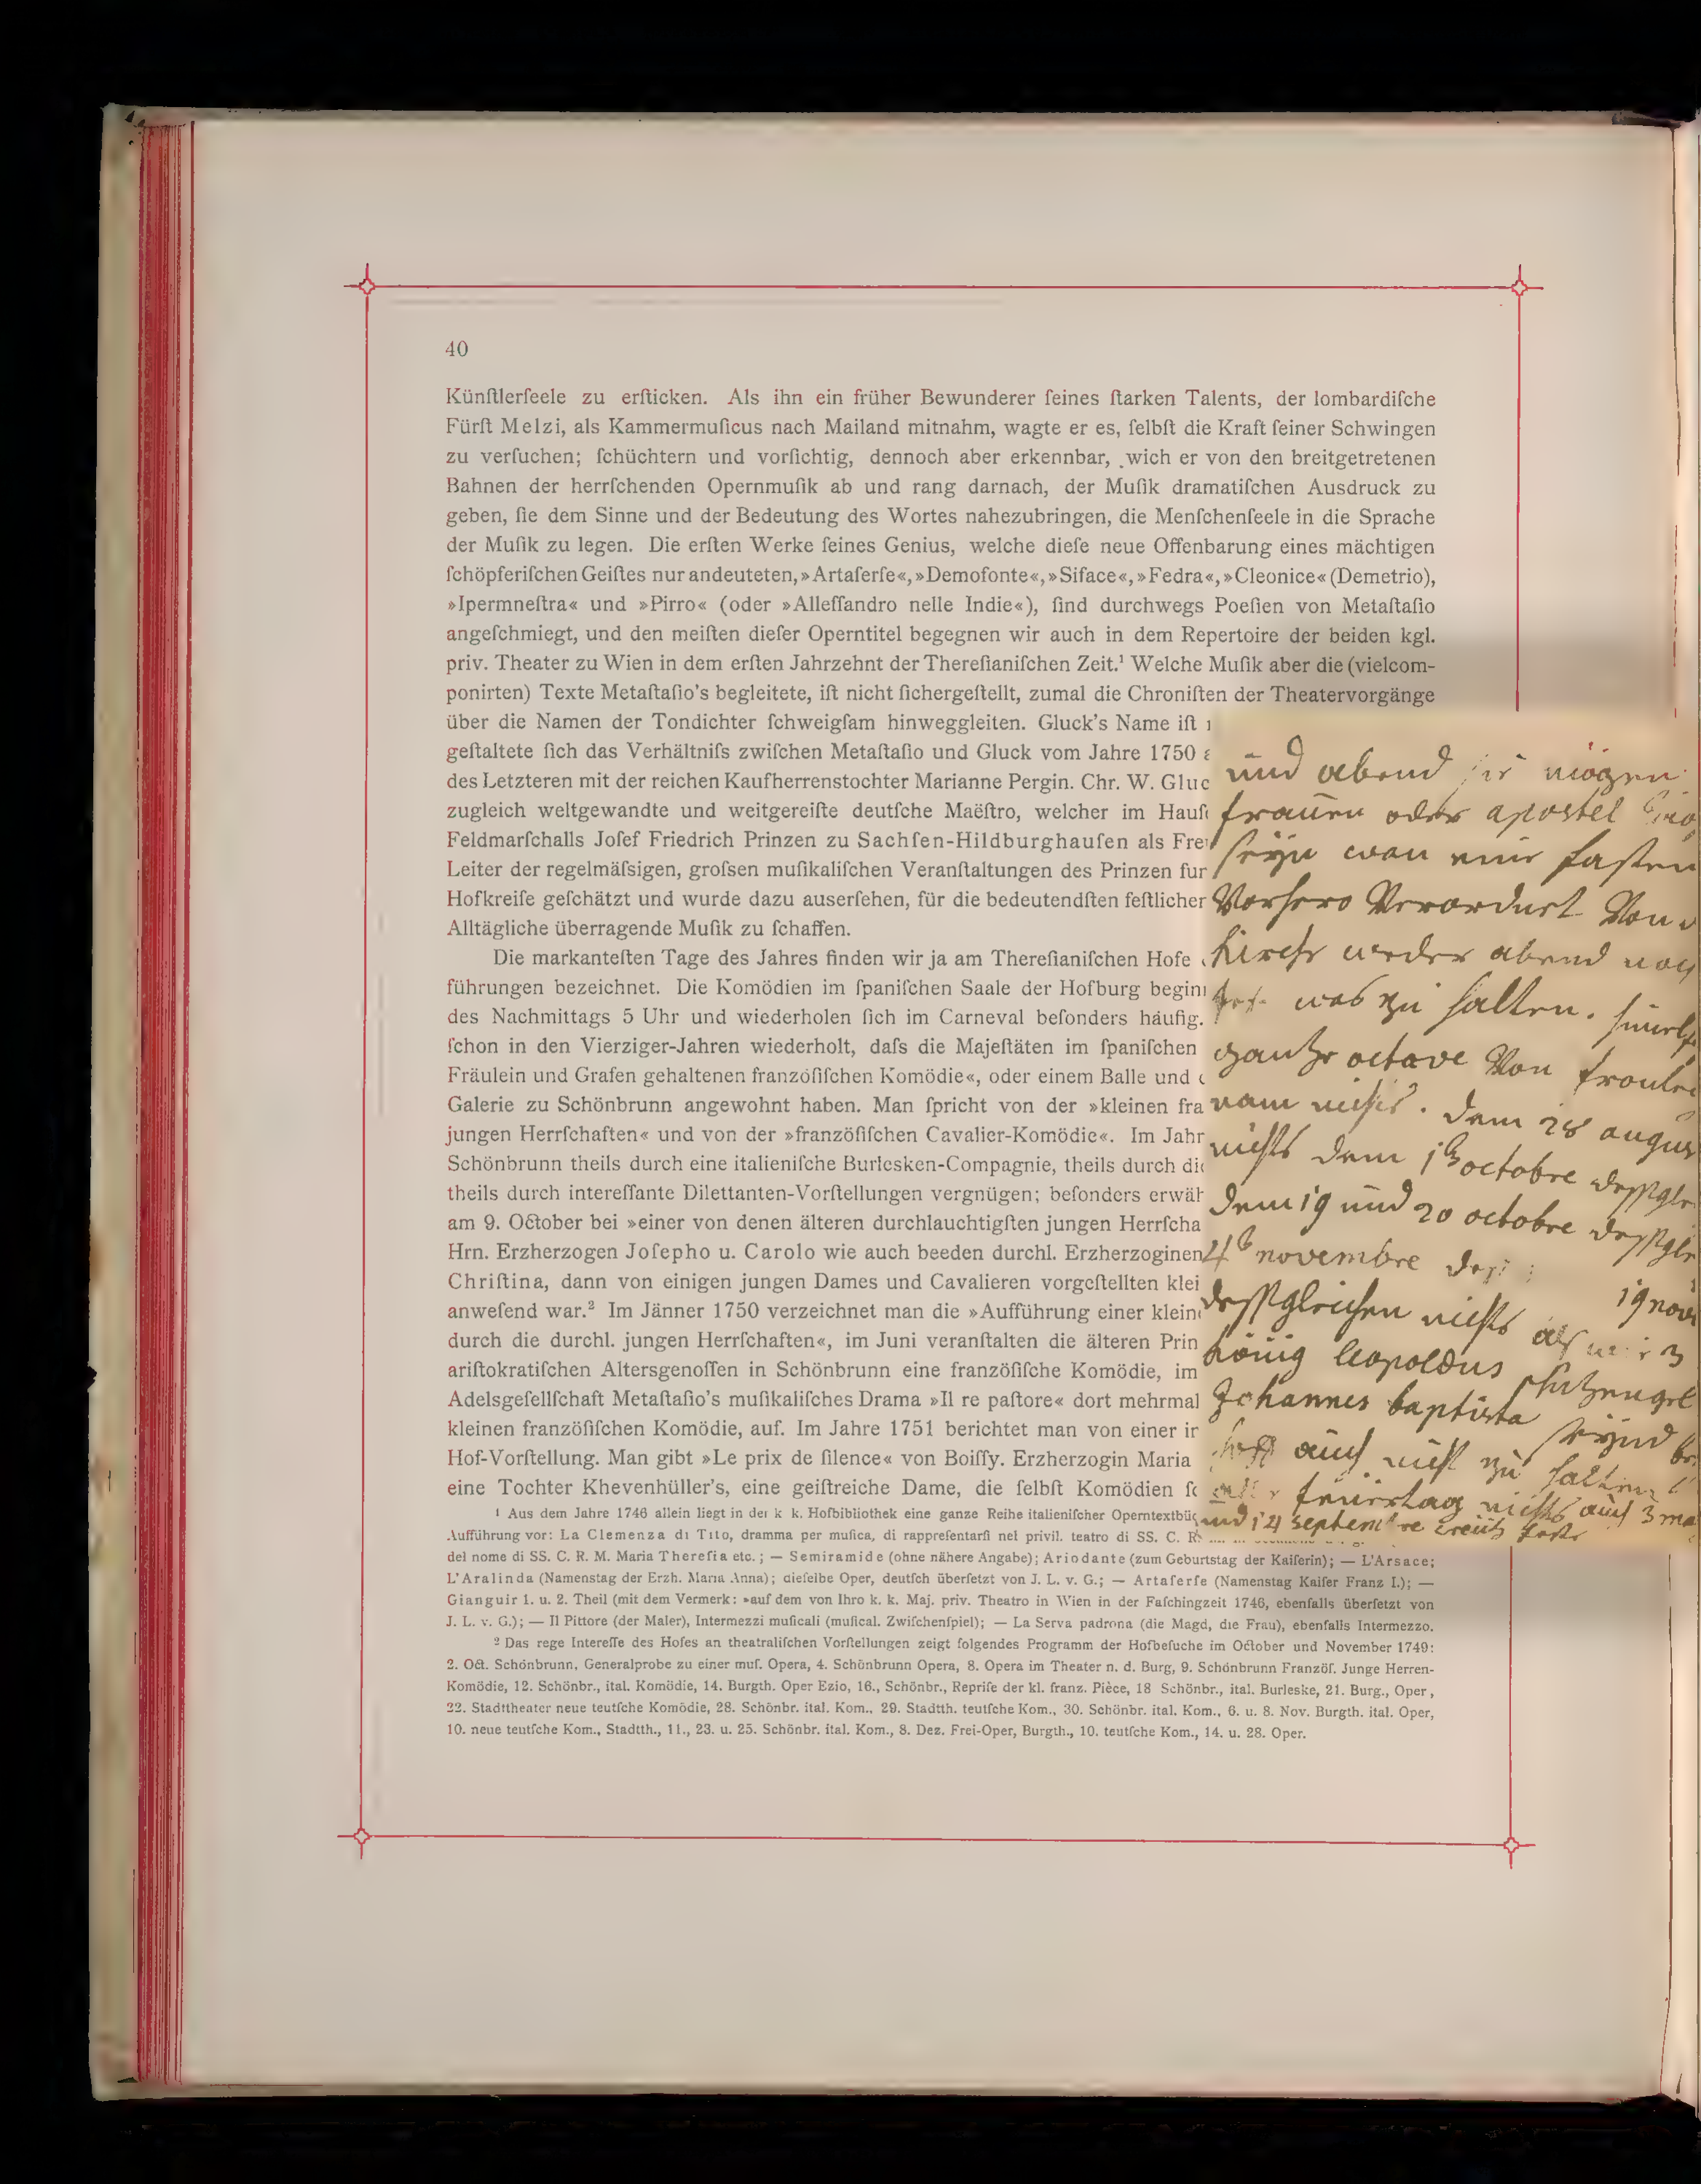 40
Künſtlerſeele zu erſticken. Als ihn ein früher Bewunderer ſeines ſtarken Talents, der lombardiſche
Fürſt Melzi, als Kammermuſicus nach Mailand mitnahm, wagte er es, ſelbſt die Kraft ſeiner Schwingen
zu verſuchen; ſchüchtern und vorſichtig, dennoch aber erkennbar, wich er von den breitgetretenen
Bahnen der herrſchenden Opernmuſik ab und rang darnach, der Muſik dramatiſchen Ausdruck zu
geben, ſie dem Sinne und der Bedeutung des Wortes nahezubringen, die Menſchenſeele in die Sprache
der Muſik zu legen. Die erſten Werke ſeines Genius, welche dieſe neue Offenbarung eines mächtigen
ſchöpferiſchen Geiſtes nur andeuteten, »Artaſerſe«, »Demofonte«, »Siface«, »Fedra«, »Cleonice« (Demetrio),
»Ipermneſtra« und »Pirro« (oder »Alleſſandro nelle Indie«), ſind durchwegs Poeſien von Metaſtaſio
angeſchmiegt, und den meiſten dieſer Operntitel begegnen wir auch in dem Repertoire der beiden kgl.
priv. Theater zu Wien in dem erſten Jahrzehnt der Thereſianiſchen Zeit.¹ Welche Muſik aber die (vielcom-
ponirten) Texte Metaſtaſio's begleitete, iſt nicht ſichergeſtellt, zumal die Chroniſten der Theatervorgänge
über die Namen der Tondichter ſchweigſam hinweggleiten. Gluck's Name iſt
geſtaltete ſich das Verhältniſs zwiſchen Metaſtaſio und Gluck vom Jahre 1750
des Letzteren mit der reichen Kaufherrenstochter Marianne Pergin. Chr. W. Gluc
zugleich weltgewandte und weitgereiſte deutſche Maëſtro, welcher im Hauſ
Feldmarſchalls Joſef Friedrich Prinzen zu Sachſen-Hildburghauſen als Fre
Leiter der regelmäſsigen, groſsen muſikaliſchen Veranſtaltungen des Prinzen fun
Hofkreiſe geſchätzt und wurde dazu auserſehen, für die bedeutendſten feſtlicher
Alltägliche überragende Muſik zu ſchaffen.
Die markanteſten Tage des Jahres finden wir ja am Thereſianiſchen Hofe
führungen bezeichnet. Die Komödien im ſpaniſchen Saale der Hofburg begin
des Nachmittags 5 Uhr und wiederholen ſich im Carneval beſonders häufig.
ſchon in den Vierziger-Jahren wiederholt, daſs die Majeſtäten im ſpaniſchen
Fräulein und Grafen gehaltenen franzöſiſchen Komödie«, oder einem Balle und
Galerie zu Schönbrunn angewohnt haben. Man ſpricht von der »kleinen fra
jungen Herrſchaften« und von der »franzöſiſchen Cavalier-Komödie«. Im Jahr
Schönbrunn theils durch eine italieniſche Burlesken-Compagnie, theils durch di
theils durch intereſſante Dilettanten-Vorſtellungen vergnügen; beſonders erwäh
am 9. October bei »einer von denen älteren durchlauchtigſten jungen Herrſcha
Hrn. Erzherzogen Joſepho u. Carolo wie auch beeden durchl. Erzherzoginen
Chriſtina, dann von einigen jungen Dames und Cavalieren vorgeſtellten klei
anweſend war.² Im Jänner 1750 verzeichnet man die »Aufführung einer klein
durch die durchl. jungen Herrſchaften«, im Juni veranſtalten die älteren Prin
ariſtokratiſchen Altersgenoſſen in Schönbrunn eine franzöſiſche Komödie, im
Adelsgeſellſchaft Metaſtaſio's muſikaliſches Drama »Il re paſtore« dort mehrmal
kleinen franzöſiſchen Komödie, auf. Im Jahre 1751 berichtet man von einer in
Hof-Vorſtellung. Man gibt »Le prix de ſilence« von Boiſſy. Erzherzogin Maria
eine Tochter Khevenhüller's, eine geiſtreiche Dame, die ſelbſt Komödien ſc
¹ Aus dem Jahre 1746 allein liegt in der k k. Hofbibliothek eine ganze Reihe italieniſcher Operntextbüc
Aufführung vor: La Clemenza di Tito, dramma per muſica, di rappreſentarſi nel privil. teatro di SS. C. R
del nome di SS. C. R. M. Maria Thereſia etc.; — Semiramide (ohne nähere Angabe); Ariodante (zum Geburtstag der Kaiſerin); — L'Arsace;
L'Aralinda (Namenstag der Erzh. Maria Anna); dieſelbe Oper, deutſch überſetzt von J. L. v. G.; — Artaſerſe (Namenstag Kaiſer Franz I.); —
Gianguir 1. u. 2. Theil (mit dem Vermerk: »auf dem von Ihro k. k. Maj. priv. Theatro in Wien in der Faſchingzeit 1746, ebenfalls überſetzt von
J. L. v. G.); — Il Pittore (der Maler), Intermezzi muſicali (muſical. Zwiſchenſpiel); — La Serva padrona (die Magd, die Frau), ebenfalls Intermezzo.
² Das rege Intereſſe des Hofes an theatraliſchen Vorſtellungen zeigt folgendes Programm der Hofbeſuche im October und November 1749:
2. Oct. Schönbrunn, Generalprobe zu einer muſ. Opera, 4. Schönbrunn Opera, 8. Opera im Theater n. d. Burg, 9. Schönbrunn Franzöſ. Junge Herren-
Komödie, 12. Schönbr., ital. Komödie, 14. Burgth. Oper Ezio, 16., Schönbr., Repriſe der kl. franz. Pièce, 18 Schönbr., ital. Burleske, 21. Burg., Oper,
22. Stadttheater neue teutſche Komödie, 28. Schönbr. ital. Kom., 29. Stadtth. teutſche Kom., 30. Schönbr. ital. Kom., 6. u. 8. Nov. Burgth. ital. Oper,
10. neue teutſche Kom., Stadtth., 11., 23. u. 25. Schönbr. ital. Kom., 8. Dez. Frei-Oper, Burgth., 10. teutſche Kom., 14. u. 28. Oper.
und abend mögen
frauen oder apostel
seyn wan eine fasten
Vorhero Verordnet Von
kirche weder abend noch
was zu halten.
gantze octave Von
nichts. dem 28 augus
nichts dem octobre
dem 19 und 20 octobre
novembre 19 nov
dessgleichen nichts
könig leopoldus
Johannes baptista seynd
auch nicht zu halten
feuertag nichts auch 3
und 14 septembre creütz